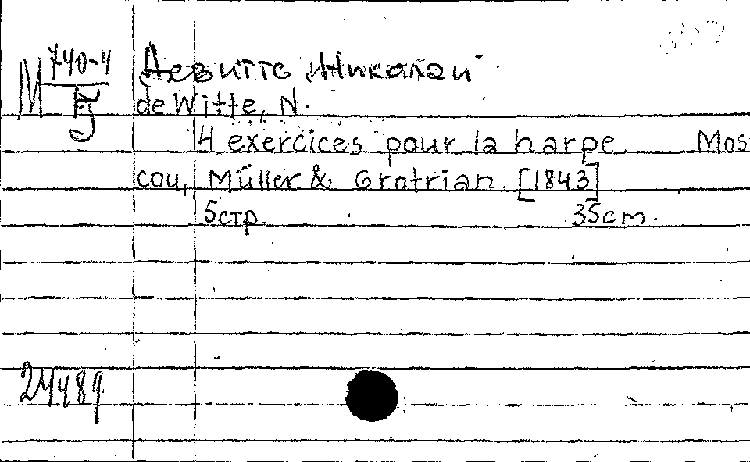 М 740-4
Девитте Николай
de Witte, N.
4 exercices pour la harpe. Mos
cou, Müller & Grotrian. [1843]
5 стр. 35 cm.
24489